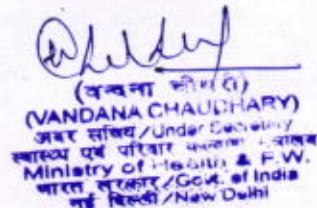 (VANDANA CHAUDHARY)
अवर सचिव/Under Secretary
स्वास्थ्य एवं परिवार कल्याण
Ministry of Health & F.W.
भारत सरकार/Govt. of India
नई दिल्ली/New Delhi